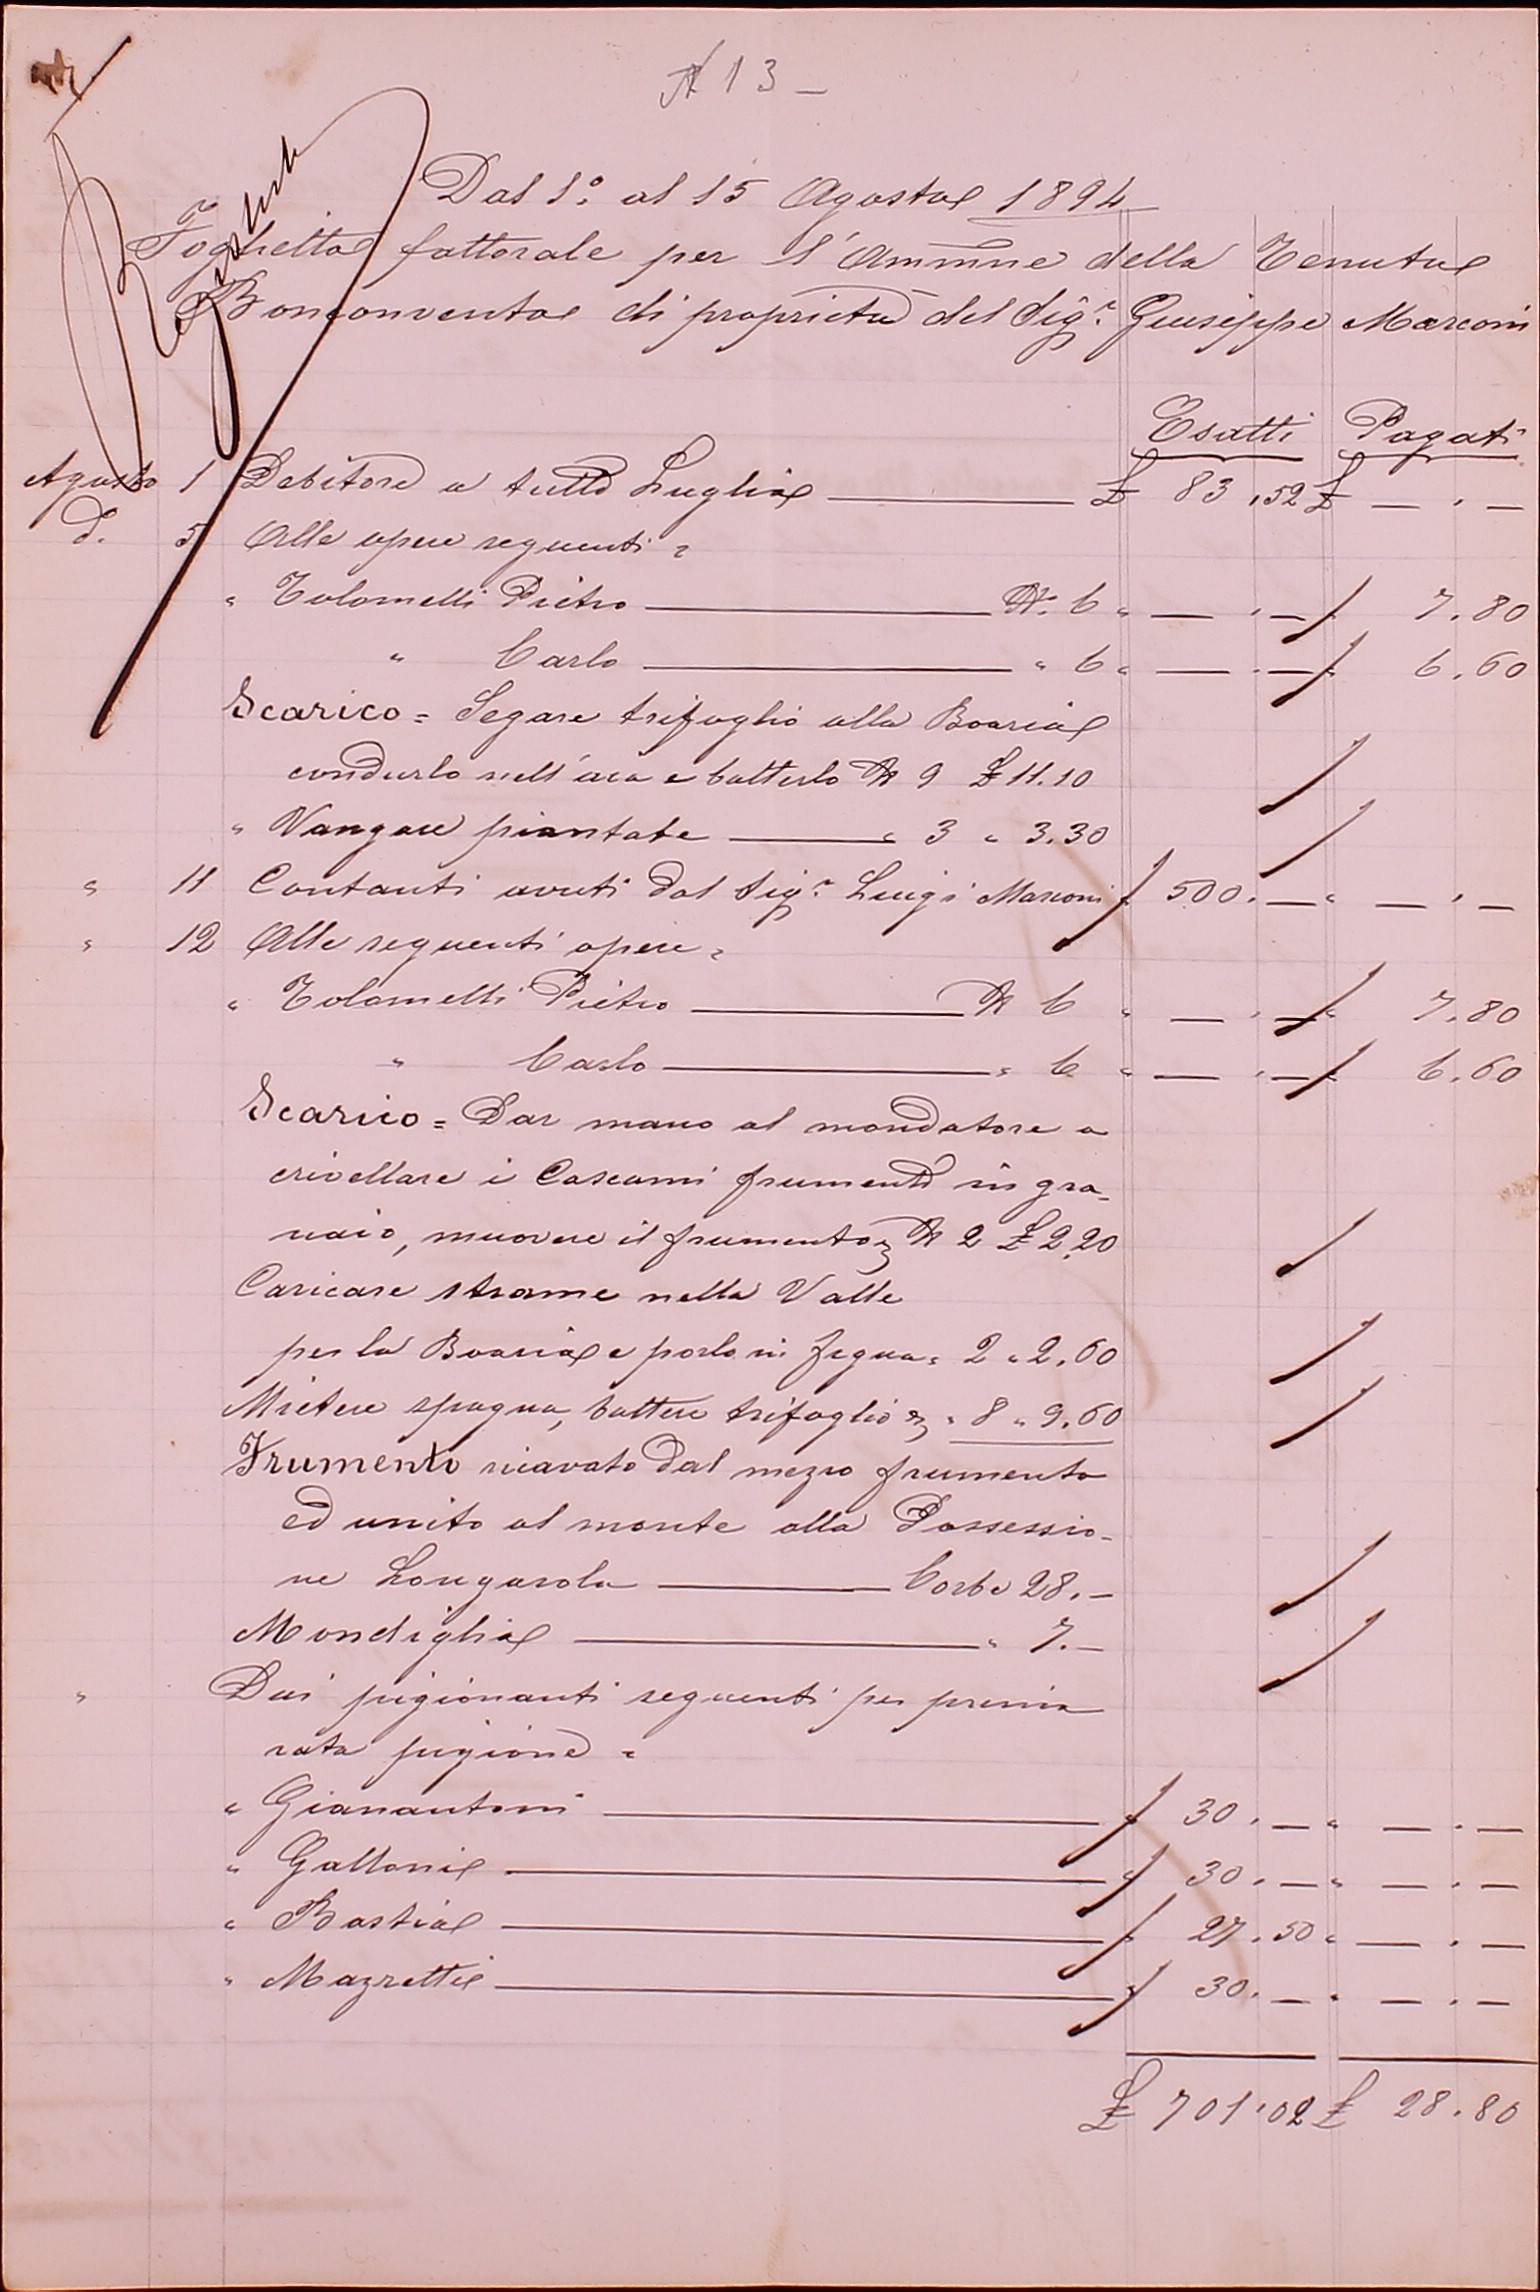 N 13 —
Registrato
Dal 1°. al 15 Agosto 1894
Foglietto fattorale per l'Ammne della Tenuta
Bonconvento di proprietà del Sigr. Giuseppe Marconi
Esatti Pagati
Agosto 1 Debitore a tutto Luglio £ 83.52 £ — . —
d. 5 Alle opere seguenti =
" Tolomelli Pietro N. 6 " — . — " 7.80
" Carlo " 6 " — . — " 6.60
Scarico = Segare trifoglio alla Boaria
condurlo nell'aia e batterlo N 9 £ 11.10
" Vangare piantate " 3 " 3.30
" 11 Contanti avuti dal Sigr. Luigi Marconi " 500. — " — . —
" 12 Alle seguenti opere =
" Tolomelli Pietro N 6 " — . — " 7.80
" Carlo " 6 " — . — " 6.60
Scarico = Dar mano al mondatore a
crivellare i Cascami frumento in gra-
naio, muovere il frumento N 2 £ 2.20
Caricare strame nella Valle
per la Boaria e porlo in " 2 " 2.60
Mietere spagna, battere trifoglio " 8 " 9.60
Frumento ricavato dal mezzo frumento
ed unito al monte alla Possessio-
ne Longarola Corbe 28. —
Mondiglia " 7. —
" Dai pigionanti seguenti per prima
rata pigione =
" Gianantoni " 30. — " — . —
" Galloni " 30. — " — . —
" Bastia " 27.50 " — . —
" Mazzetti " 30. — " — . —
£ 701.02 £ 28.80